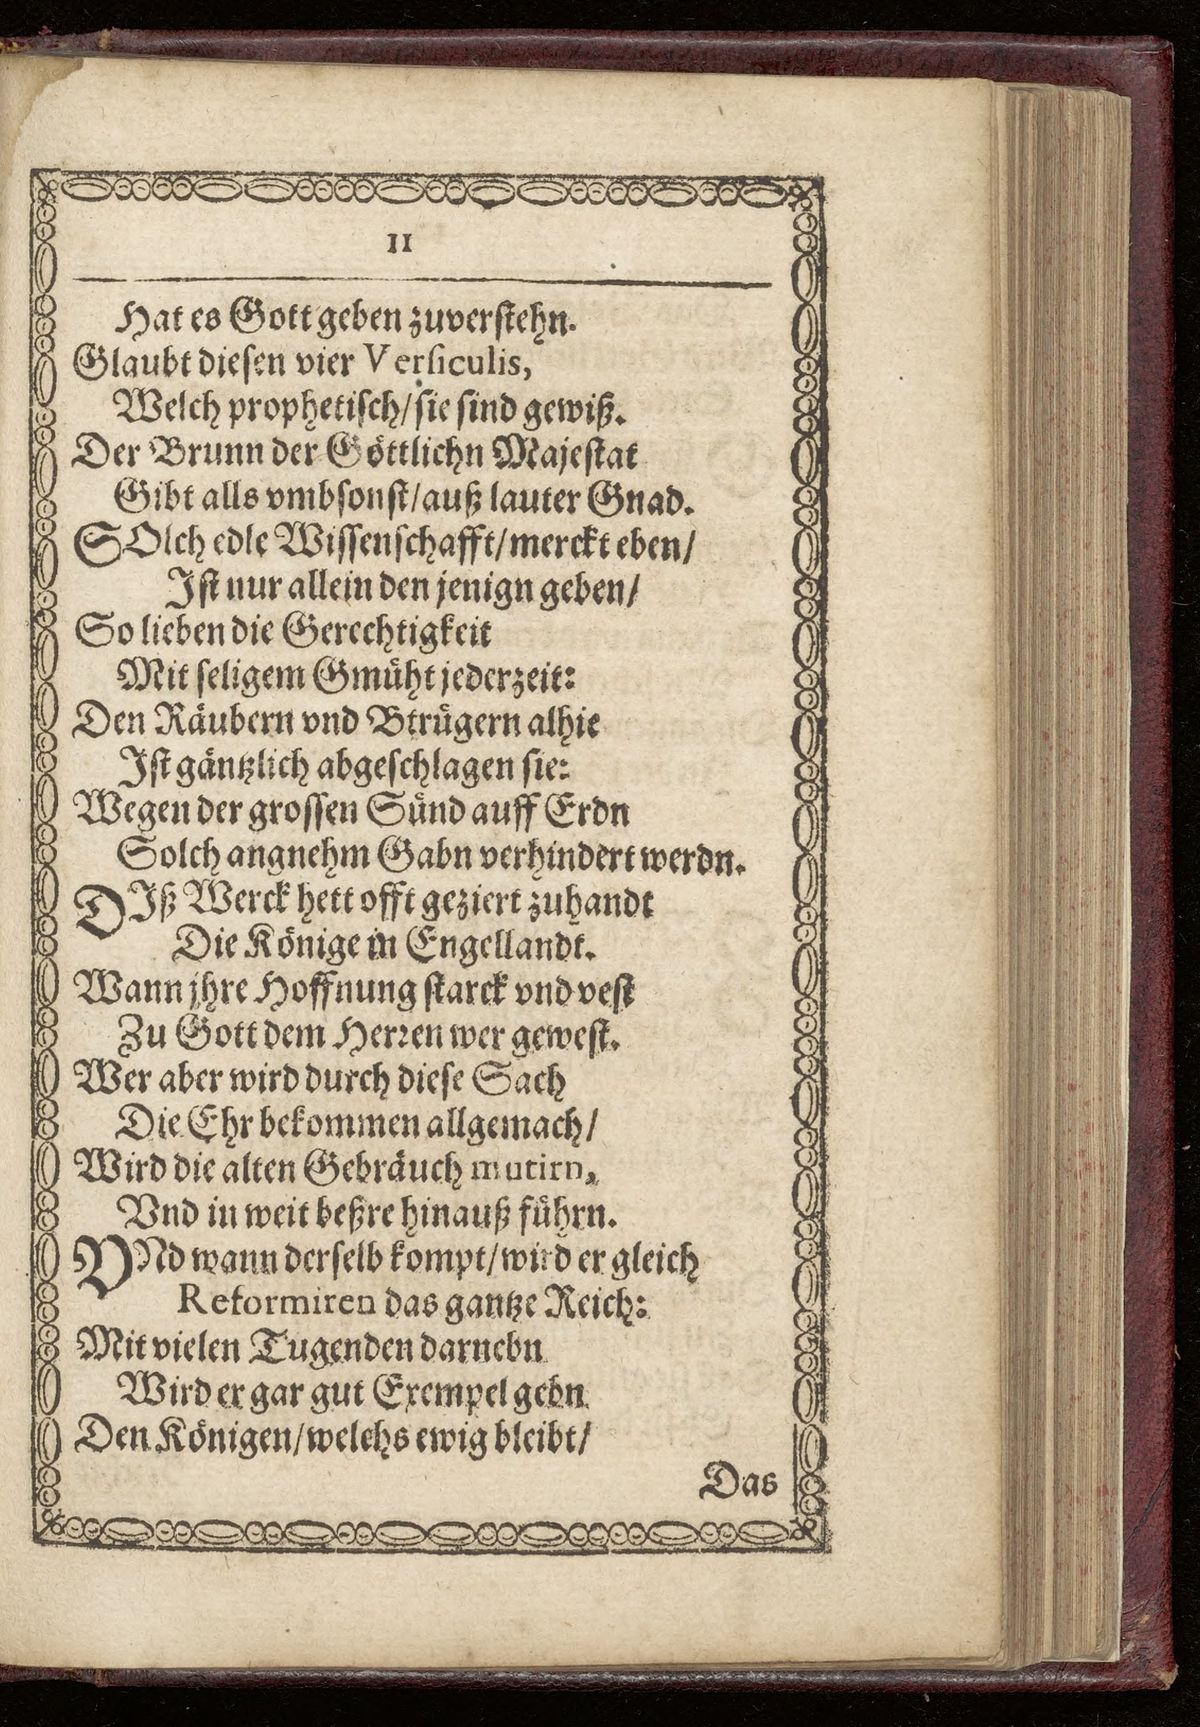 11
Hat es Gott geben zuverstehn.
Glaubt diesen vier Versiculis,
Welch prophetisch/ sie sind gewiß.
Der Brunn der Göttlichn Majestat
Gibt alls vmbsonst/ auß lauter Gnad.
SOlch edle Wissenschafft/ merckt eben/
Ist nur allein den jenign geben/
So lieben die Gerechtigkeit
Mit seligem Gmüht jederzeit:
Den Räubern vnd Btrügern alhie
Ist gäntzlich abgeschlagen sie:
Wegen der grossen Sünd auff Erdn
Solch angnehm Gabn verhindert werdn.
DIß Werck hett offt geziert zuhandt
Die Könige in Engellandt.
Wann jhre Hoffnung starck vnd vest
Zu Gott dem Herren wer gewest.
Wer aber wird durch diese Sach
Die Ehr bekommen allgemach/
Wird die alten Gebräuch mutirn,
Vnd in weit beßre hinauß führn.
VNd wann derselb kompt/ wird er gleich
Reformiren das gantze Reich:
Mit vielen Tugenden darnebn
Wird er gar gut Exempel gebn
Den Königen/ welchs ewig bleibt/
Das